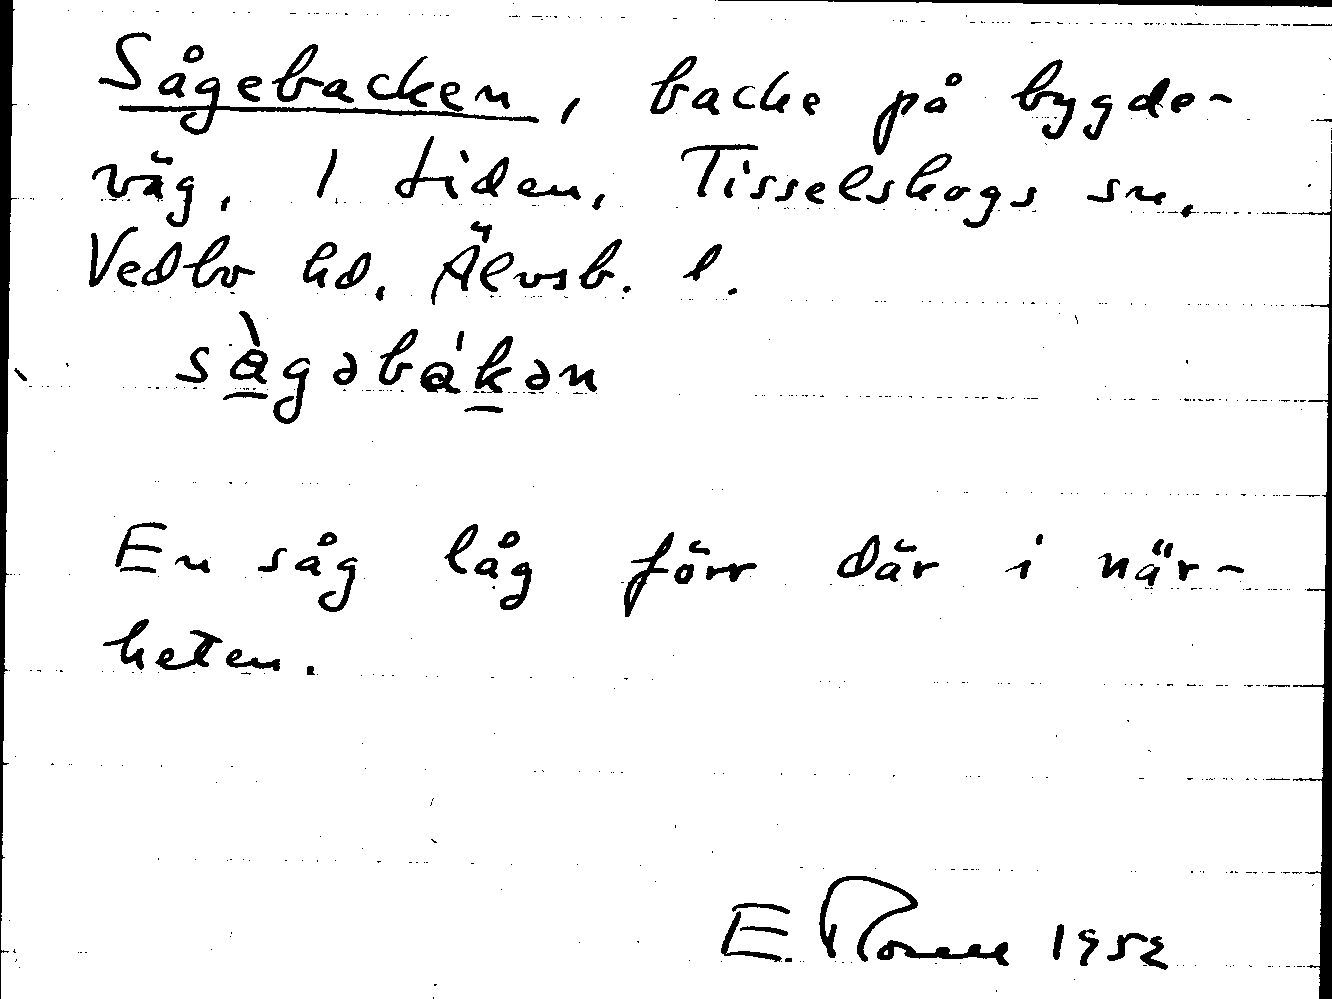 Sågebacken, backe på bygde-
väg, 1 tiden, Tisselskogs sn,
Vedbo hd, Älvsb. l.
sàgəbákən
En såg låg förr där i när-
heten.
E. 1952